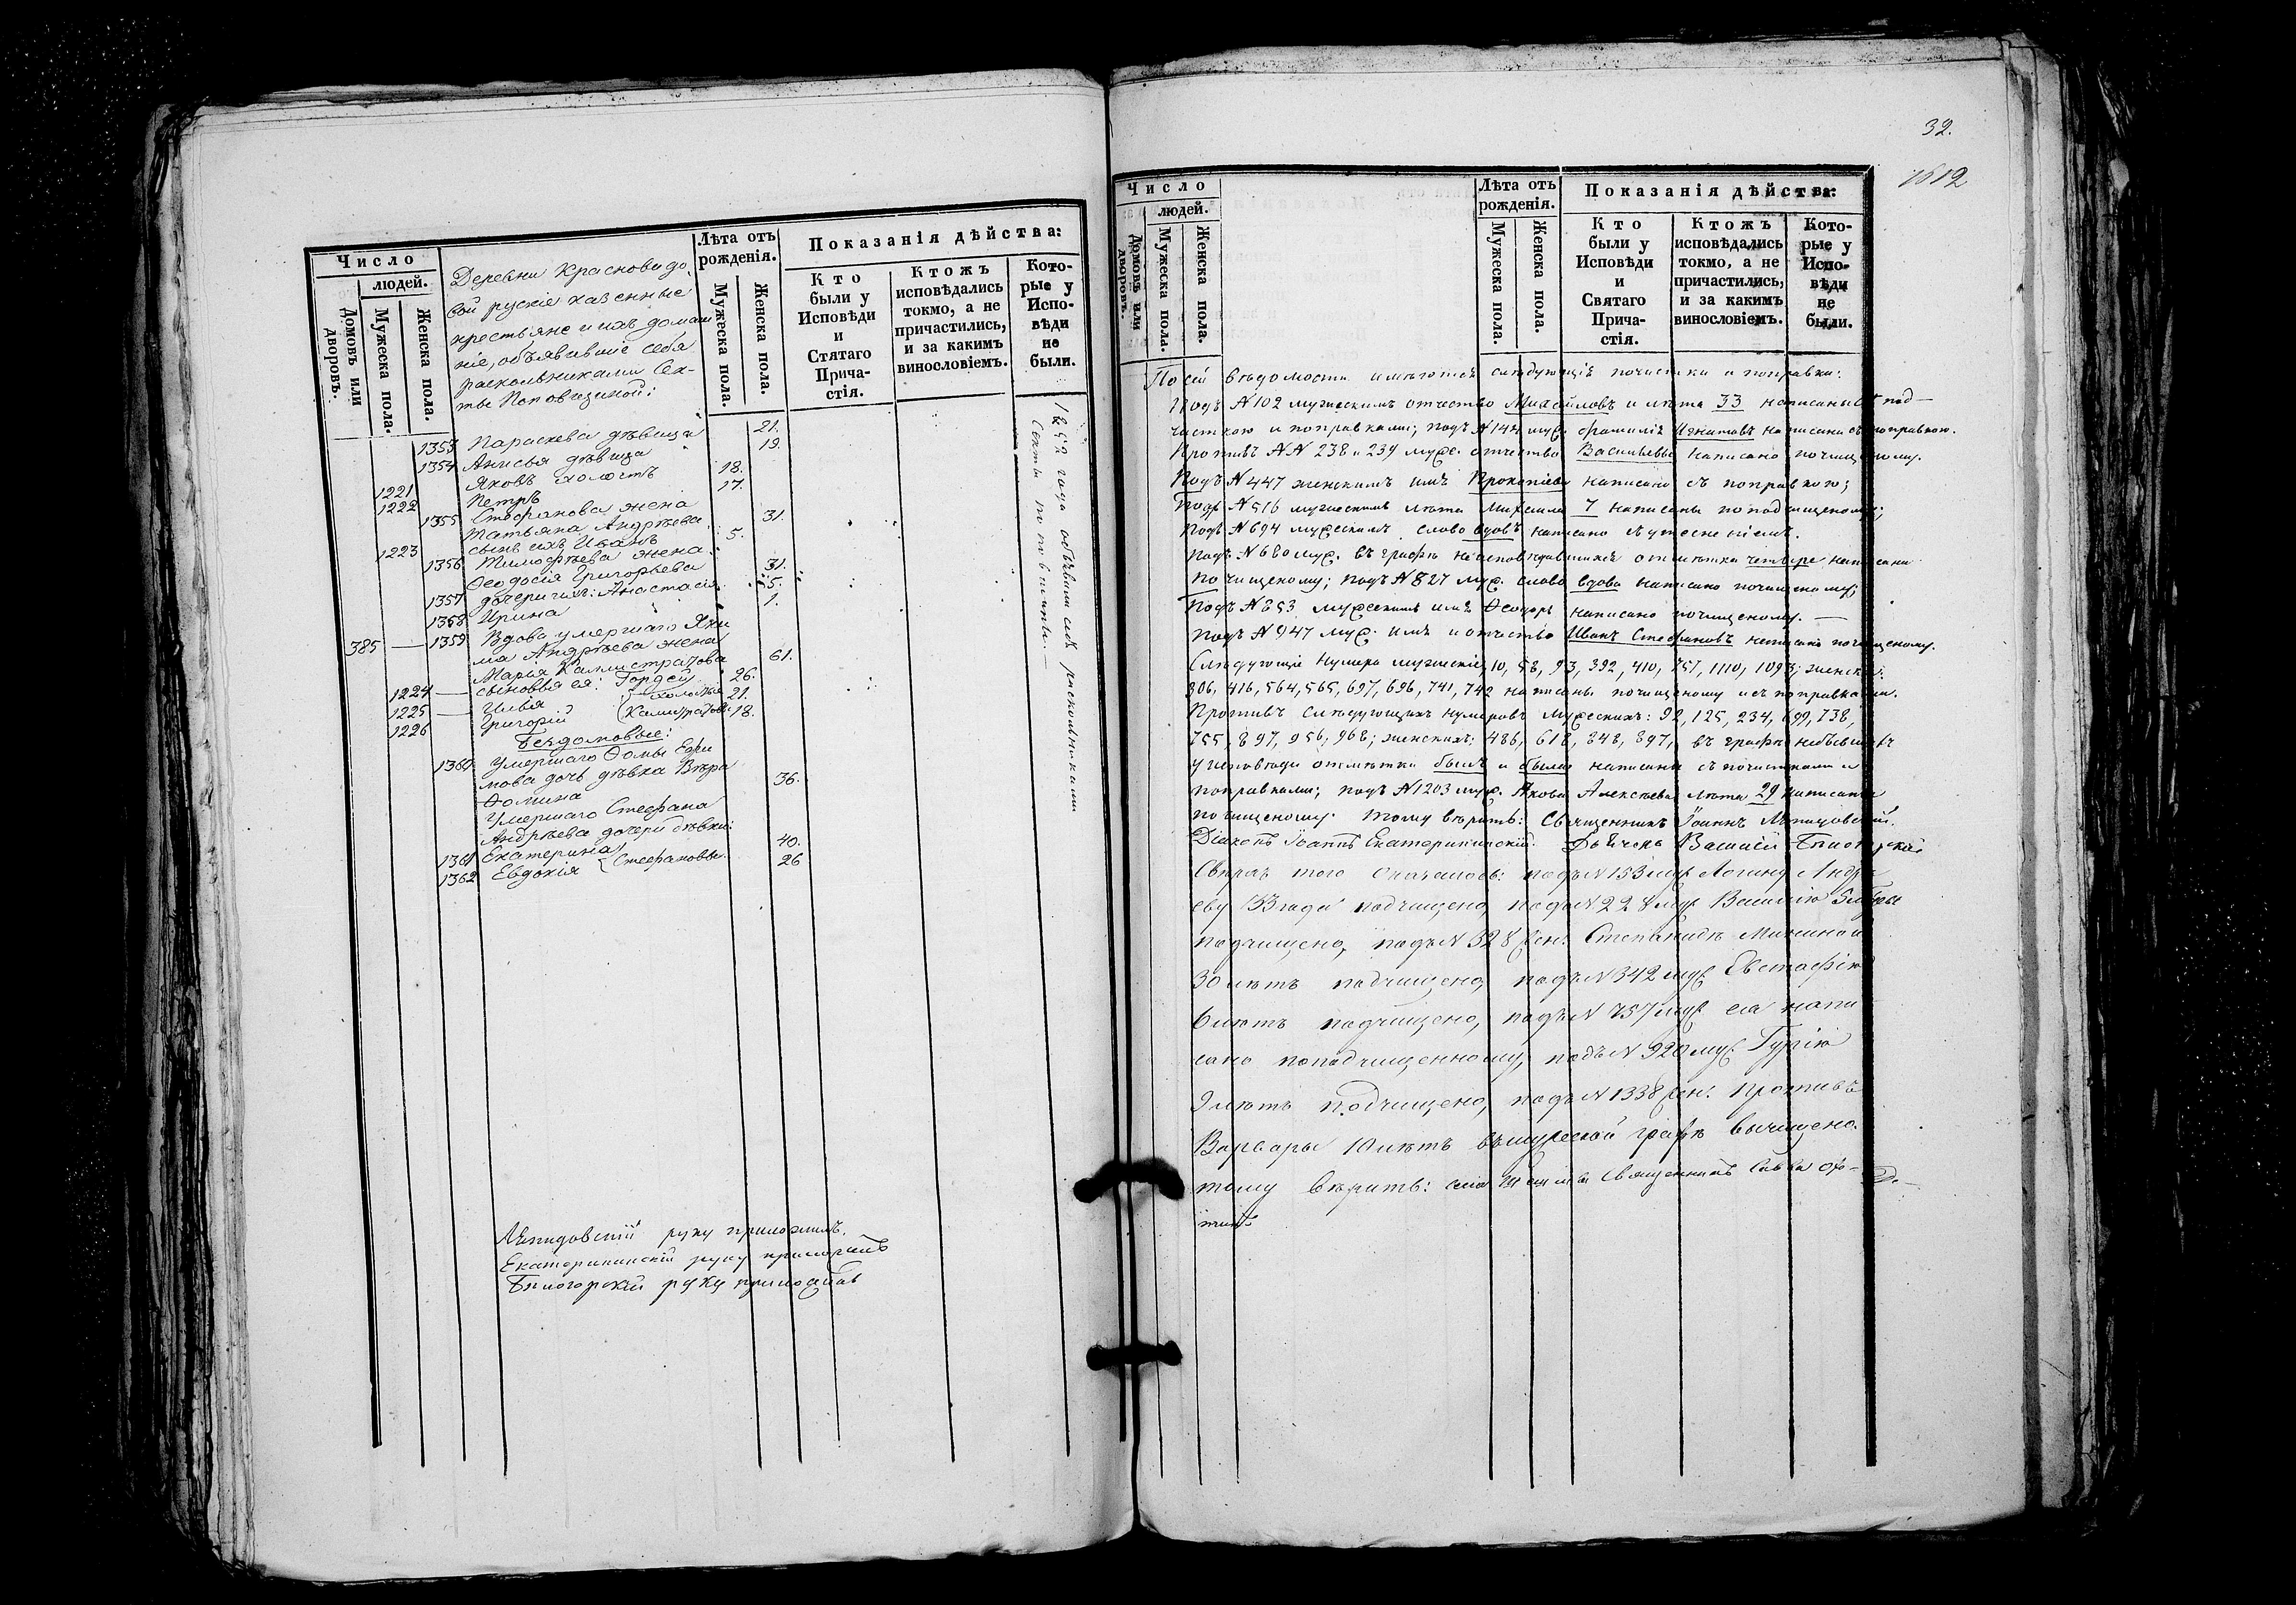 Число
людей.
Домовъ или дворовъ.
Мужеска пола.
Женска пола.
Деревни Красновидо
вой рускіе казенные
крестьяне и ихъ домаш
ніе, объявившіе себя
раскольниками Сек-
ты Поповщиной:
Лѣта отъ рожденія.
Мужеска пола.
Женска пола.
Показанія дѣйства:
Кто были у Исповѣди и Стятаго Прича-стія.
Ктожъ исповѣдались токмо, а не причастились, и за какимъ винословіемъ.
Кото-рые у Испо-вѣди не были.
1353 Параскева дѣвица 21.
1354 Анисья дѣвица 19.
1221 Яковъ холостъ 18.
1222 Петръ 17.
1355 Стефанова жена
Татьяна Андрѣева 31.
1223 сынъ ихъ Иванъ 5.
1356 Тимофѣева жена
Ѳеодосія Григорьева 31.
1357 дочери ихъ: Анастасія 5.
1358 Ирина 1.
385 — 1359 Вдова умершаго Яки
ма Андрѣева жена
Марія Каллистратова 61.
1224 — сыновья ея: Гордей 26.
1225 — Илья } холостые 21.
1226 Григорій 18.
Бездомовые:
1360 Умершаго Ѳомы Ефи
мова дочь дѣвка Вѣра
Ѳомина 36.
Умершаго Стефана
Андрѣева дочери дѣвки:
1361 Екатерина 40.
1362 Евдокія } Стефановы. 26
года объявили себя раскольниками
Секты поповщины. —
Лѣпидовскій руку приложилъ.
Екатерининскій руку приложилъ
Бѣлогорскій руку приложилъ
32.
1612
Число
людей.
Домовъ или дворовъ.
Мужеска пола.
Женска пола.
Лѣта отъ рожденія.
Мужеска пола.
Женска пола.
Показанія дѣйства:
Кто были у Исповѣди и Святаго Прича-стія.
Ктожъ исповѣдались токмо, а не причастились, и за какимъ винословіемъ.
Кото-рые у Испо-вѣди не были.
По сей вѣдомости имѣются слѣдующія почистки и поправки:
Подъ №102 мужескимъ отчество Михайловъ и лѣта 33 написаны съ под-
чисткою и поправками; подъ №144 муж. фамилія Игнатовъ написана съ поправкою.
Противъ №№ 238 и 239 муж. отчество Васильевы написано почищеному.
Подъ №447 женскимъ имя Прокопіева написано съ поправкою;
Подъ №516 мужескимъ лѣта Михаила 7 написаны по подчищеному;
Подъ №694 мужескимъ слово вдовъ написано
Подъ №680 муж. въ графѣ неисповѣдавшихся отмѣтка четыре написана
по чищеному; подъ №827 муж. слово вдова написано почищеному;
Подъ №853 мужескимъ имя Ѳеодоръ написано почищеному. —
Подъ №947 муж. имя и отчество Иванъ Стефановъ написано почищеному.
Слѣдующіе нумера мужескіе, 10, 58, 93, 392, 410, 757, 1110, 1093; женскіе:
306, 416, 564, 565, 697, 696, 741, 742 написаны почищеному и съ поправками.
Противъ слѣдующихъ нумеровъ мужескихъ: 92, 125, 234, 699, 738,
755, 897, 956, 968; женскихъ: 486, 618, 848, 897, въ графѣ небывшихъ
у исповѣди отмѣтки былъ и была написаны съ почистками и
поправками; подъ №1203 муж. Якова Алексѣева лѣта 29 написаны
по чищеному. Тому вѣрить: Священникъ Іоаннъ Лѣпидовскій.
Діаконъ Іоаннъ Екатерининскій. Дьячекъ Василій Бѣлогорскій
Сверхъ того оказалось: подъ №153 муж. Логину Андре
еву 33 года подчищено, подъ №228 муж. Василію
подчищено, подъ №328 жен. Степанидѣ Мининой
30 лѣтъ подчищено, подъ №342 муж. Евстафію
6 лѣтъ подчищено, подъ №757 муж. напи
сано поподчищенному, подъ №920 муж. Гурію
9 лѣтъ подчищено, подъ №1338 жен. противъ
Варвары 10 лѣтъ въ мужеской графѣ вычищено.
тому вѣрить: села Священникъ Савва